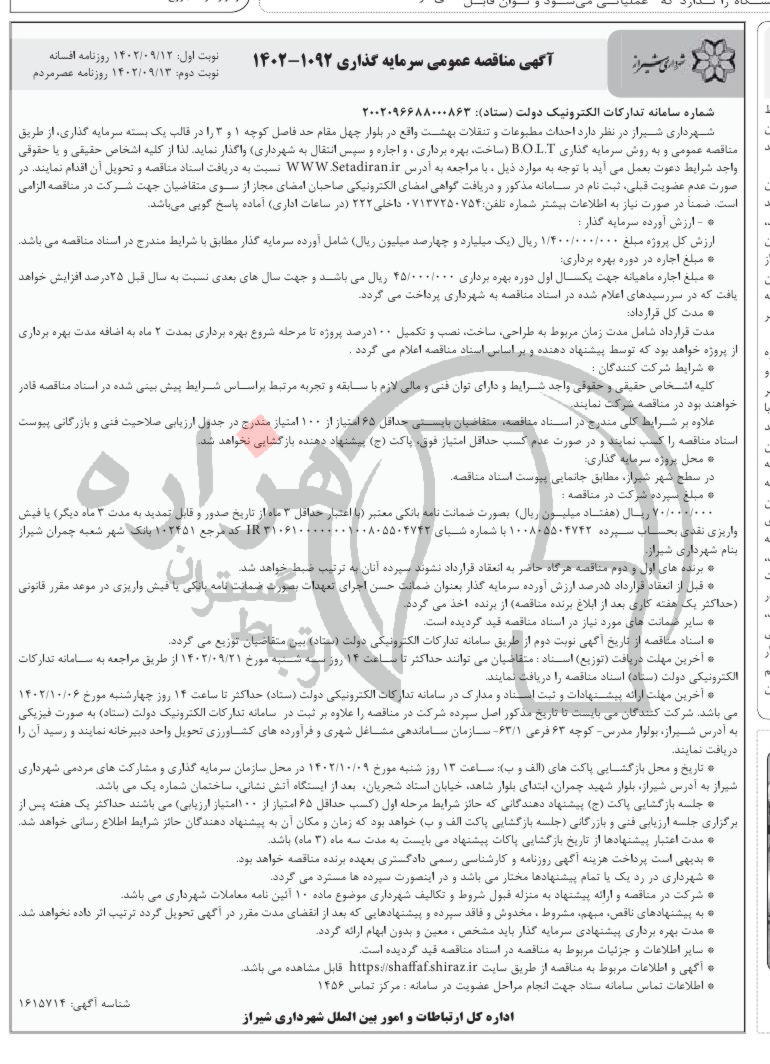 شهرداری شیراز
آگهی مناقصه عمومی سرمایه گذاری ۱۰۹۲-۱۴۰۲
نوبت اول: ۱۴۰۲/۰۹/۱۲ روزنامه افسانه
نوبت دوم: ۱۴۰۲/۰۹/۱۳ روزنامه عصرمردم
شماره سامانه تدارکات الکترونیک دولت (ستاد): ۲۰۰۲۰۹۶۶۸۸۰۰۰۸۶۳
شهرداری شیراز در نظر دارد احداث مطبوعات و تنقلات بهشت واقع در بلوار چهل مقام حد فاصل کوچه ۱ و ۳ را در قالب یک بسته سرمایه گذاری، از طریق
مناقصه عمومی و به روش سرمایه گذاری B.O.L.T (ساخت، بهره برداری ، و اجاره و سپس انتقال به شهرداری) واگذار نماید. لذا از کلیه اشخاص حقیقی و یا حقوقی
واجد شرایط دعوت بعمل می آید با توجه به موارد ذیل ، با مراجعه به آدرس WWW.Setadiran.ir نسبت به دریافت اسناد مناقصه و تحویل آن اقدام نمایند. در
صورت عدم عضویت قبلی، ثبت نام در سامانه مذکور و دریافت گواهی امضای الکترونیکی صاحبان امضای مجاز از سوی متقاضیان جهت شرکت در مناقصه الزامی
است. ضمناً در صورت نیاز به اطلاعات بیشتر شماره تلفن:۰۷۱۳۷۲۵۰۷۵۴ داخلی۲۲۲ (در ساعات اداری) آماده پاسخ گویی می‌باشد.
* - ارزش آورده سرمایه گذار :
ارزش کل پروژه مبلغ ۱/۴۰۰/۰۰۰/۰۰۰ ریال (یک میلیارد و چهارصد میلیون ریال) شامل آورده سرمایه گذار مطابق با شرایط مندرج در اسناد مناقصه می باشد.
* مبلغ اجاره در دوره بهره برداری:
* مبلغ اجاره ماهیانه جهت یکسال اول دوره بهره برداری ۴۵/۰۰۰/۰۰۰ ریال می باشد و جهت سال های بعدی نسبت به سال قبل ۲۵درصد افزایش خواهد
یافت که در سررسیدهای اعلام شده در اسناد مناقصه به شهرداری پرداخت می گردد.
* مدت کل قرارداد:
مدت قرارداد شامل مدت زمان مربوط به طراحی، ساخت، نصب و تکمیل ۱۰۰درصد پروژه تا مرحله شروع بهره برداری بمدت ۲ ماه به اضافه مدت بهره برداری
از پروژه خواهد بود که توسط پیشنهاد دهنده و بر اساس اسناد مناقصه اعلام می گردد .
* شرایط شرکت کنندگان :
کلیه اشخاص حقیقی و حقوقی واجد شرایط و دارای توان فنی و مالی لازم با سابقه و تجربه مرتبط براساس شرایط پیش بینی شده در اسناد مناقصه قادر
خواهند بود در مناقصه شرکت نمایند.
علاوه بر شرایط کلی مندرج در اسناد مناقصه، متقاضیان بایستی حداقل ۶۵ امتیاز از ۱۰۰ امتیاز مندرج در جدول ارزیابی صلاحیت فنی و بازرگانی پیوست
اسناد مناقصه را کسب نمایند و در صورت عدم کسب حداقل امتیاز فوق، پاکت (ج) پیشنهاد دهنده بازگشایی نخواهد شد.
* محل پروژه سرمایه گذاری:
در سطح شهر شیراز، مطابق جانمایی پیوست اسناد مناقصه.
* مبلغ سپرده شرکت در مناقصه :
۷۰/۰۰۰/۰۰۰ ریال (هفتاد میلیون ریال) بصورت ضمانت نامه بانکی معتبر (با اعتبار حداقل ۳ ماه از تاریخ صدور و قابل تمدید به مدت ۳ ماه دیگر) یا فیش
واریزی نقدی بحساب سپرده ۱۰۰۸۰۵۵۰۴۷۴۲ با شماره شبای IR ۳۱۰۶۱۰۰۰۰۰۰۰۱۰۰۸۰۵۵۰۴۷۴۲ کد مرجع ۱۰۲۴۵۱ بانک شهر شعبه چمران شیراز
بنام شهرداری شیراز.
* برنده های اول و دوم مناقصه هرگاه حاضر به انعقاد قرارداد نشوند سپرده آنان به ترتیب ضبط خواهد شد.
* قبل از انعقاد قرارداد ۵درصد ارزش آورده سرمایه گذار بعنوان ضمانت حسن اجرای تعهدات بصورت ضمانت نامه بانکی یا فیش واریزی در موعد مقرر قانونی
(حداکثر یک هفته کاری بعد از ابلاغ برنده مناقصه) از برنده اخذ می گردد.
* سایر ضمانت های مورد نیاز در اسناد مناقصه قید گردیده است.
* اسناد مناقصه از تاریخ آگهی نوبت دوم از طریق سامانه تدارکات الکترونیکی دولت (ستاد) بین متقاضیان توزیع می گردد.
* آخرین مهلت دریافت (توزیع) اسناد : متقاضیان می توانند حداکثر تا ساعت ۱۴ روز سه شنبه مورخ ۱۴۰۲/۰۹/۲۱ از طریق مراجعه به سامانه تدارکات
الکترونیکی دولت (ستاد) اسناد مناقصه را دریافت نمایند.
* آخرین مهلت ارائه پیشنهادات و ثبت اسناد و مدارک در سامانه تدارکات الکترونیکی دولت (ستاد) حداکثر تا ساعت ۱۴ روز چهارشنبه مورخ ۱۴۰۲/۱۰/۰۶
می باشد. شرکت کنندگان می بایست تا تاریخ مذکور اصل سپرده شرکت در مناقصه را علاوه بر ثبت در سامانه تدارکات الکترونیک دولت (ستاد) به صورت فیزیکی
به آدرس شیراز، بولوار مدرس- کوچه ۶۳ فرعی ۶۳/۱- سازمان ساماندهی مشاغل شهری و فرآورده های کشاورزی تحویل واحد دبیرخانه نمایند و رسید آن را
دریافت نمایند.
* تاریخ و محل بازگشایی پاکت های (الف و ب): ساعت ۱۳ روز شنبه مورخ ۱۴۰۲/۱۰/۰۹ در محل سازمان سرمایه گذاری و مشارکت های مردمی شهرداری
شیراز به آدرس شیراز، بلوار شهید چمران، ابتدای بلوار شاهد، خیابان استاد شجریان، بعد از ایستگاه آتش نشانی، ساختمان شماره یک می باشد.
* جلسه بازگشایی پاکت (ج) پیشنهاد دهندگانی که حائز شرایط مرحله اول (کسب حداقل ۶۵ امتیاز از ۱۰۰امتیاز ارزیابی) می باشند حداکثر یک هفته پس از
برگزاری جلسه ارزیابی فنی و بازرگانی (جلسه بازگشایی پاکت الف و ب) خواهد بود که زمان و مکان آن به پیشنهاد دهندگان حائز شرایط اطلاع رسانی خواهد شد.
* مدت اعتبار پیشنهادها از تاریخ بازگشایی پاکات پیشنهاد می بایست به مدت سه ماه (۳ ماه) باشد.
* بدیهی است پرداخت هزینه آگهی روزنامه و کارشناسی رسمی دادگستری بعهده برنده مناقصه خواهد بود.
* شهرداری در رد یک یا تمام پیشنهادها مختار می باشد و در اینصورت سپرده ها مسترد می گردد.
* شرکت در مناقصه و ارائه پیشنهاد به منزله قبول شروط و تکالیف شهرداری موضوع ماده ۱۰ آئین نامه معاملات شهرداری می باشد.
* به پیشنهادهای ناقص، مبهم، مشروط ، مخدوش و فاقد سپرده و پیشنهادهایی که بعد از انقضای مدت مقرر در آگهی تحویل گردد ترتیب اثر داده نخواهد شد.
* مدت بهره برداری پیشنهادی سرمایه گذار باید مشخص ، معین و بدون ابهام ارائه گردد.
* سایر اطلاعات و جزئیات مربوط به مناقصه در اسناد مناقصه قید گردیده است.
* آگهی و اطلاعات مربوط به مناقصه از طریق سایت https://shaffaf.shiraz.ir قابل مشاهده می باشد.
* اطلاعات تماس سامانه ستاد جهت انجام مراحل عضویت در سامانه : مرکز تماس ۱۴۵۶
شناسه آگهی: ۱۶۱۵۷۱۴
اداره کل ارتباطات و امور بین الملل شهرداری شیراز
هزاره
گستران
ارتباط